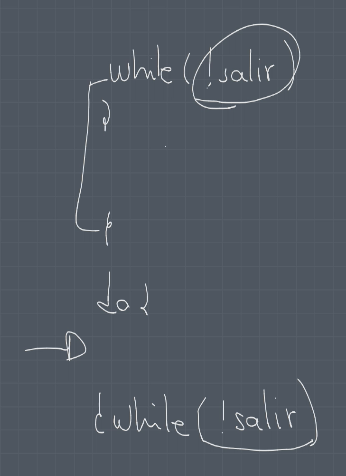 while (!salir)
{
}
do {
} while (!salir)